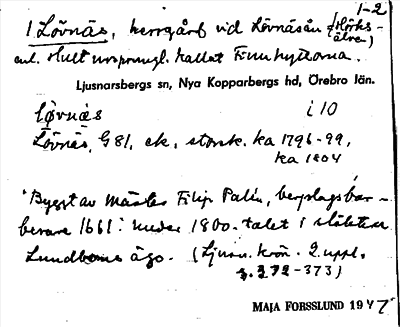 1-2
1 Lövnäs, herrgård vid Lövnäsån (Hörks-
älven)
enl. Hult ursprungl. kallat Finnhyttorna.
Ljusnarsbergs sn, Nya Kopparbergs hd, Örebro län.
lövnäs i 10
Lövnäs, G 81, ek, storsk. ka 1796-99,
ka 1804
"Byggt av mäster Filip Palin, bergslagsbar-
berare 1661: under 1800-talet i släkten
Lundboms ägo. (Ljusn. krön. 2. uppl.
s. 372-373)
MAJA FORSSLUND 1947